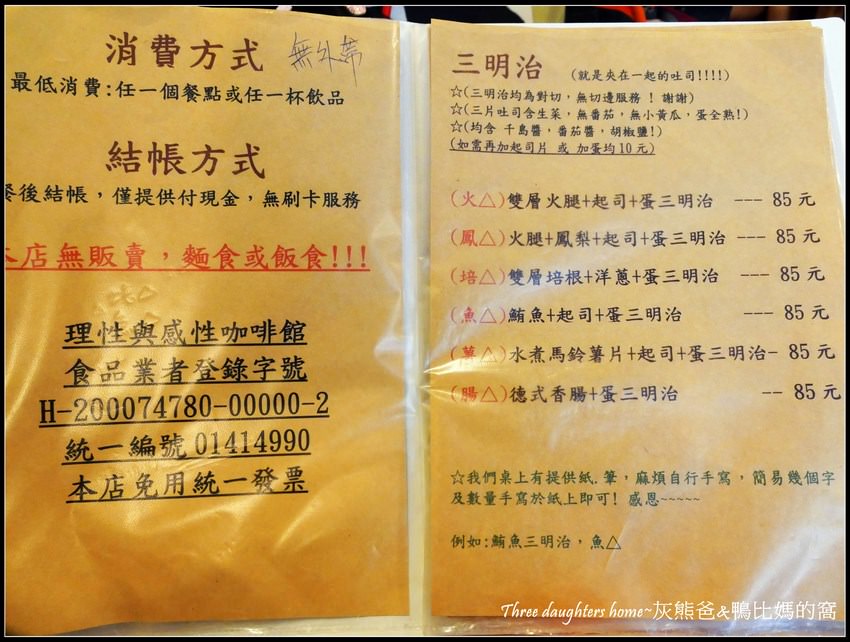 消費方式 無外帶
最低消費:任一個餐點或任一杯飲品
結帳方式
餐後結帳，僅提供付現金，無刷卡服務
本店無販賣，麵食或飯食!!!
理性與感性咖啡館
食品業者登錄字號
H-200074780-00000-2
統一編號01414990
本店免用統一發票
三明治 (就是夾在一起的吐司!!!!)
☆(三明治均為對切，無切邊服務 ! 謝謝)
☆(三片吐司含生菜，無番茄，無小黃瓜，蛋全熟!)
☆(均含 千島醬，番茄醬，胡椒鹽!)
(如需再加起司片 或 加蛋均10元)
(火△)雙層火腿+起司+蛋三明治 --- 85元
(鳳△)火腿+鳳梨+起司+蛋三明治 --- 85元
(培△)雙層培根+洋蔥+蛋三明治 --- 85元
(魚△)鮪魚+起司+蛋三明治 --- 85元
(薯△)水煮馬鈴薯片+起司+蛋三明治- 85元
(腸△)德式香腸+蛋三明治 -- 85元
☆我們桌上有提供紙.筆，麻煩自行手寫，簡易幾個字
及數量手寫於紙上即可! 感恩~~~~~
例如:鮪魚三明治，魚△
Three daughters home~灰熊爸&鴨比媽的窩